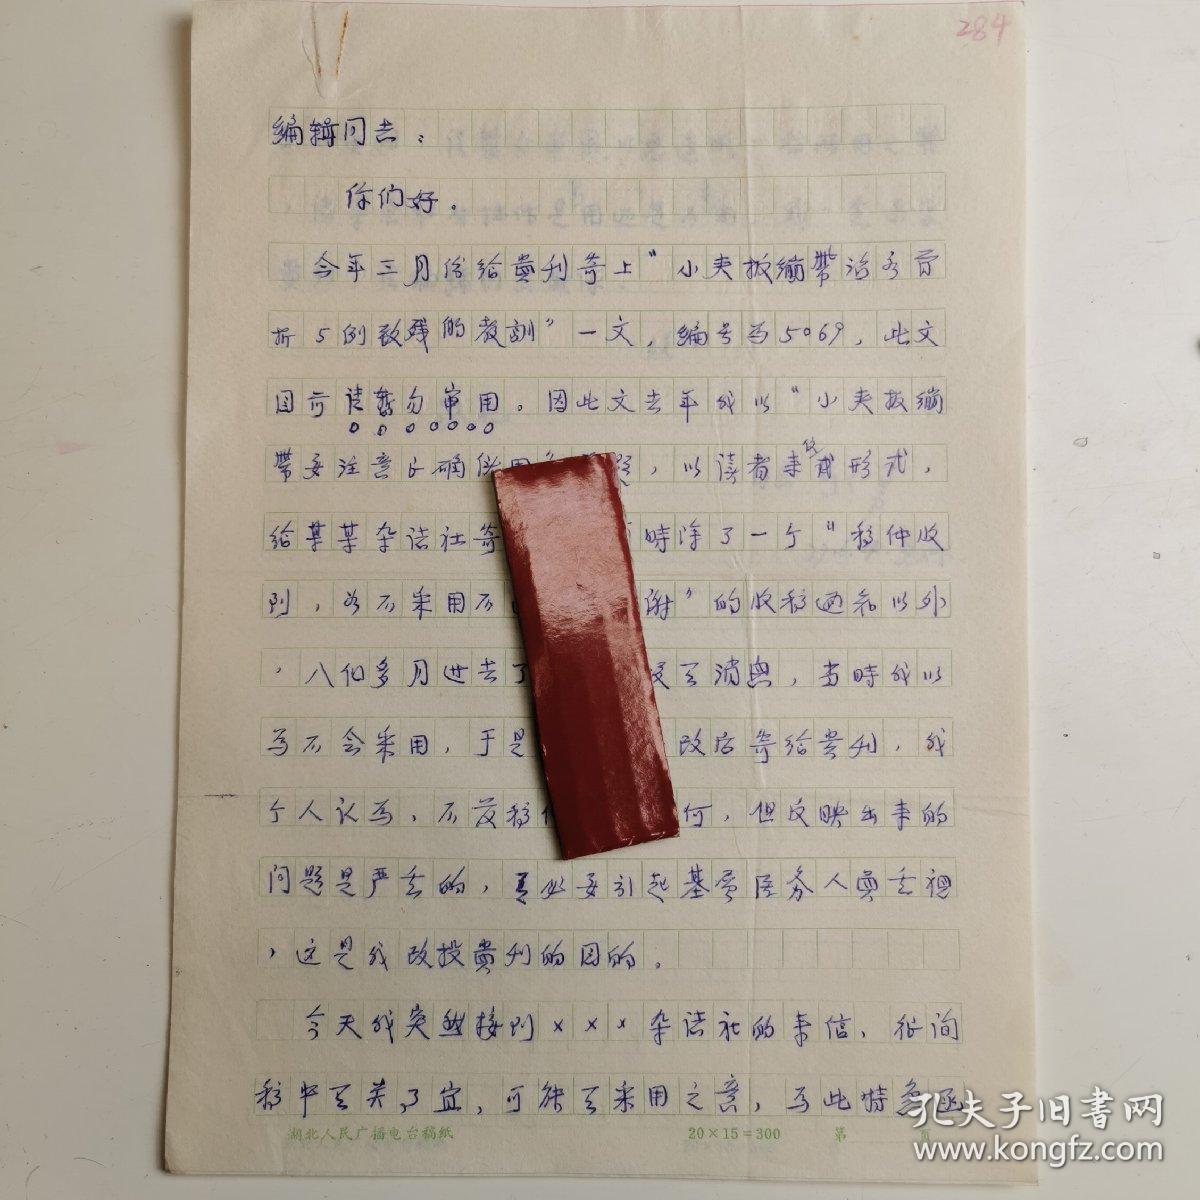 284
编辑同志：
你们好。
今年三月份给貴刊寄上“小夹板绷帶治疗骨
折5例致残的教訓”一文，编号为5069，此文
目前请暂勿审用。因此文去年我以“小夹板绷
帶要注意正确使用 ，以读者来信形式，
给某某杂誌社寄 時除了一个“稿件收
到，如不采用不 谢”的收稿通知以外
，八个多月过去了 没有消息，当時我以
为不会采用，于是 改后寄给貴刊，我
个人认为，不发稿 何，但反映出来的
问题是严重的，有必要引起基层医务人員重視
，这是我改投貴刊的目的。
今天我突然接到×××杂誌社的来信，征询
稿中有关事宜，可能有采用之意，为此特急函
湖北人民广播电台稿纸
20×15=300
第 页
孔夫子旧书网
www.kongfz.com